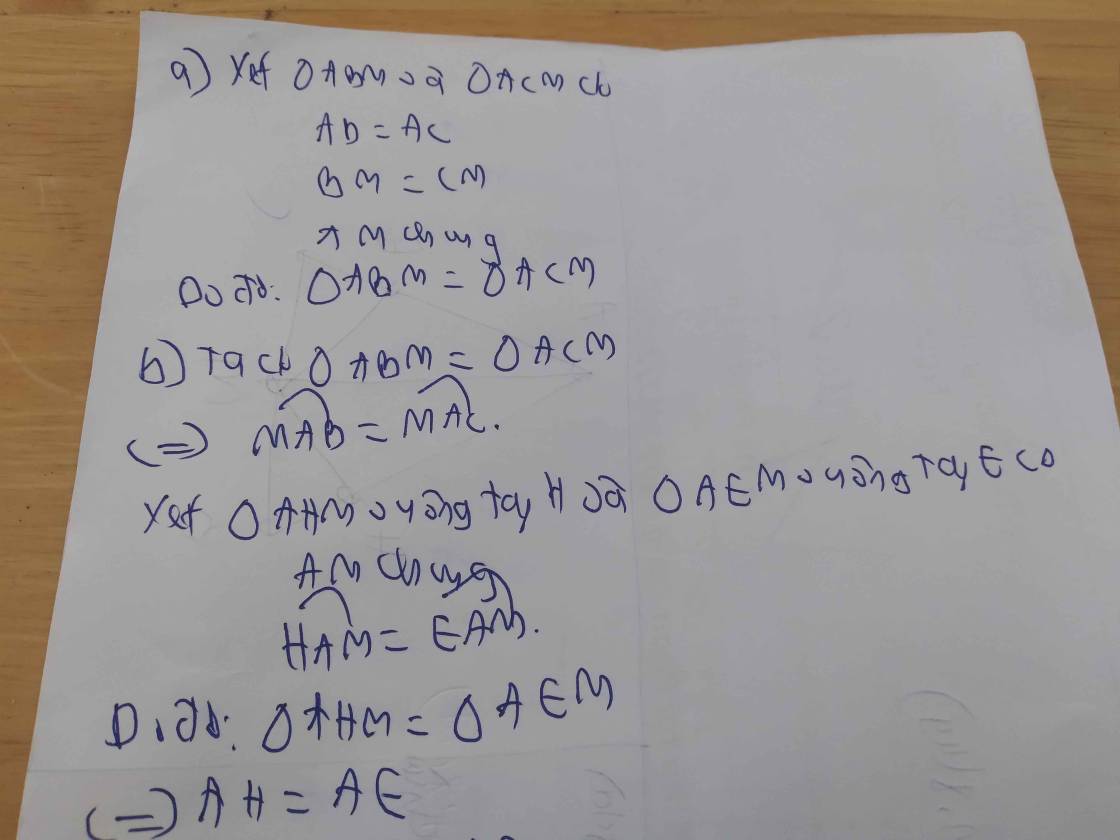 a) Xét ΔABM và ΔACM có
AB = AC
BM = CM
AM chung
Do đó: ΔABM = ΔACM
b) Ta có ΔABM = ΔACM
(=) MAB = MAC.
Xét ΔAHM vuông tại H và ΔAEM vuông tại E có
AM chung
HAM = EAM.
Do đó: ΔAHM = ΔAEM
(=) AH = AE